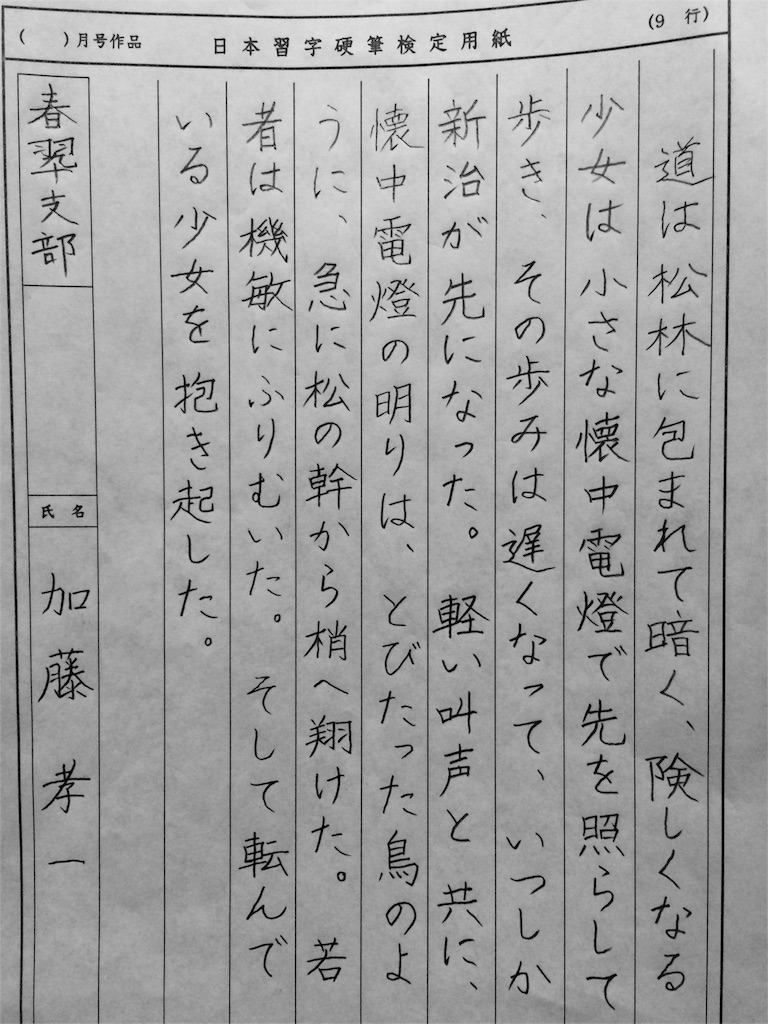 ( )月号作品
日本習字硬筆検定用紙
(9 行)
道は松林に包まれて暗く、険しくなる
少女は小さな懐中電燈で先を照らして
歩き、その歩みは遅くなって、いつしか
新治が先になった。軽い叫声と共に、
懐中電燈の明りは、とびたった鳥のよ
うに、急に松の幹から梢へ翔けた。若
者は機敏にふりむいた。そして転んで
いる少女を抱き起した。
春翠支部
氏名
加藤 孝一